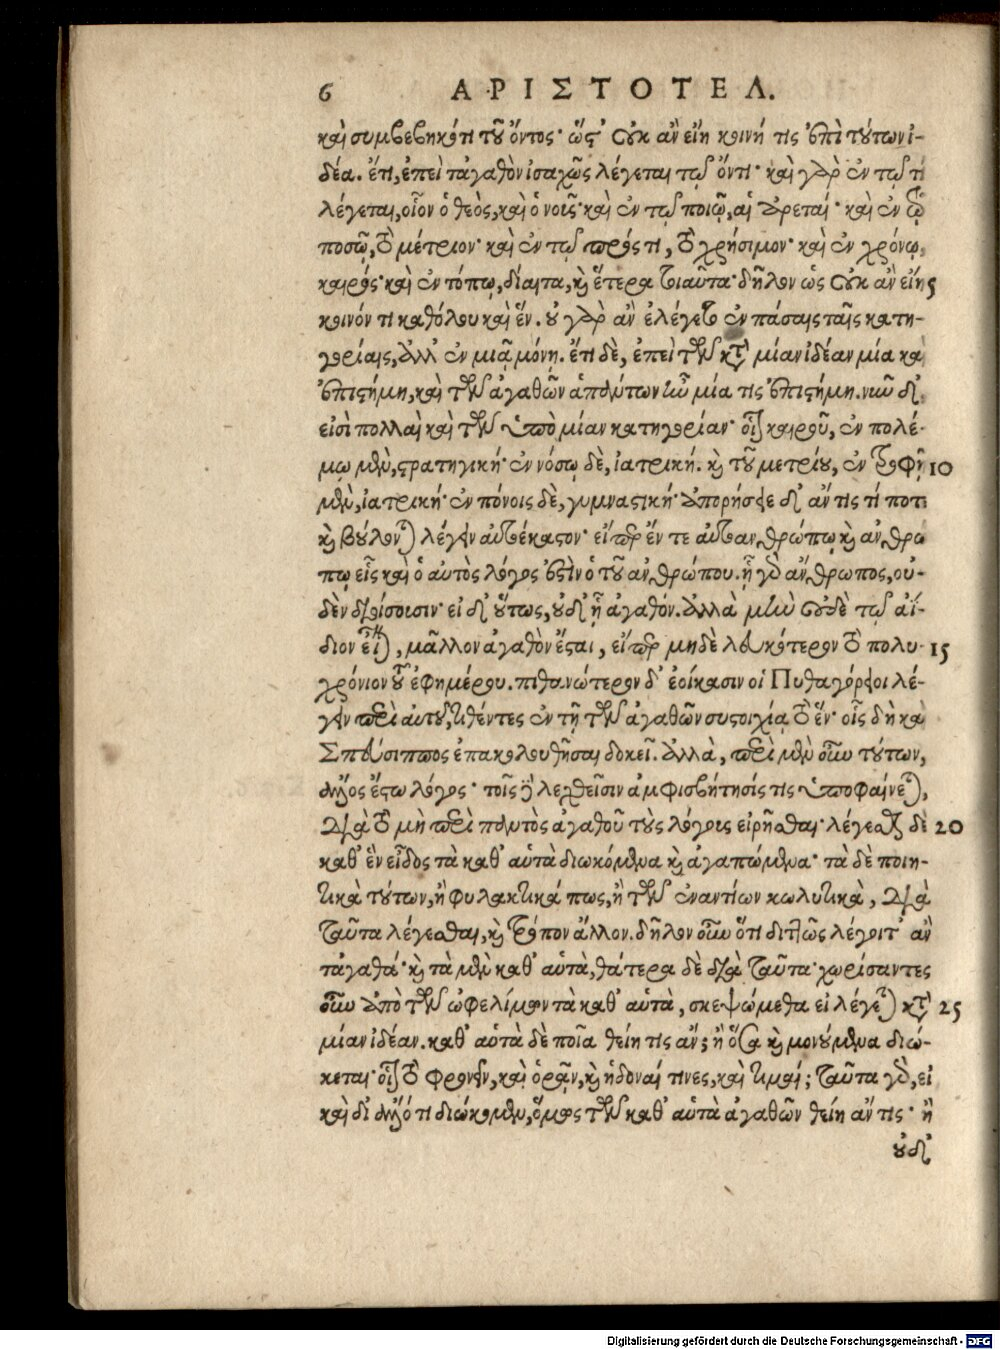 6 ΑΡΙΣΤΟΤΕΛ.
καὶ συμβεβηκότι τοῦ ὄντος· ὥςτ' οὐκ ἂν εἴη κοινή τις ἐπὶ τούτων ἰ-
δέα. ἔτι, ἐπεὶ τἀγαθὸν ἰσαχῶς λέγεται τῷ ὄντι· καὶ γὰρ ἐν τῷ τί
λέγεται, οἷον ὁ θεὸς, καὶ ὁ νοῦς· καὶ ἐν τῷ ποιῷ, αἱ ἀρεταί· καὶ ἐν τῷ
ποσῷ, τὸ μέτριον· καὶ ἐν τῷ πρός τι, τὸ χρήσιμον· καὶ ἐν χρόνῳ,
καιρός· καὶ ἐν τόπῳ, δίαιτα, καὶ ἕτερα τοιαῦτα· δῆλον ὡς οὐκ ἂν εἴη 5
κοινόν τι καθόλου καὶ ἕν. οὐ γὰρ ἂν ἐλέγετο ἐν πάσαις ταῖς κατη-
γορίαις, ἀλλ' ἐν μιᾷ μόνῃ. ἔτι δὲ, ἐπεὶ τῶν κατὰ μίαν ἰδέαν μία καὶ
ἐπιστήμη, καὶ τῶν ἀγαθῶν ἁπάντων ἦν μία τις ἐπιστήμη. νῦν δ'
εἰσὶ πολλαὶ καὶ τῶν ὑπὸ μίαν κατηγορίαν· οἷον καιροῦ, ἐν πολέ-
μῳ μὲν, στρατηγική· ἐν νόσῳ δὲ, ἰατρική. καὶ τοῦ μετρίου, ἐν τροφῇ 10
μὲν, ἰατρική· ἐν πόνοις δὲ, γυμναστική· ἀπορήσειε δ' ἄν τις τί ποτε
καὶ βούλονται λέγειν αὐτοέκαστον· εἴπερ ἔν τε αὐτοανθρώπῳ καὶ ἀνθρώ
πῳ εἷς καὶ ὁ αὐτὸς λόγος ἐστὶν ὁ τοῦ ἀνθρώπου. ᾗ γὰρ ἄνθρωπος, οὐ-
δὲν διοίσουσιν· εἰ δ' οὕτως, οὐδ' ᾗ ἀγαθόν. ἀλλὰ μὴν οὐδὲ τῷ ἀΐ-
διον εἶναι, μᾶλλον ἀγαθὸν ἔσται, εἴπερ μηδὲ λευκότερον τὸ πολυ- 15
χρόνιον τοῦ ἐφημέρου. πιθανώτερον δ' ἐοίκασιν οἱ Πυθαγόρειοι λέ-
γειν περὶ αὐτοῦ, τιθέντες ἐν τῇ τῶν ἀγαθῶν συστοιχίᾳ τὸ ἕν· οἷς δὴ καὶ
Σπεύσιππος ἐπακολουθῆσαι δοκεῖ. ἀλλὰ, περὶ μὲν οὖν τούτων,
ἄλλος ἔστω λόγος· τοῖς δὲ λεχθεῖσιν ἀμφισβήτησίς τις ὑποφαίνεται,
διὰ τὸ μὴ περὶ παντὸς ἀγαθοῦ τοὺς λόγους εἰρῆσθαι· λέγεσθαι δὲ 20
καθ' ἓν εἶδος τὰ καθ' αὑτὰ διωκόμενα καὶ ἀγαπώμενα· τὰ δὲ ποιη-
τικὰ τούτων, ἢ φυλακτικά πως, ἢ τῶν ἐναντίων κωλυτικὰ, διὰ
ταῦτα λέγεσθαι, καὶ τρόπον ἄλλον. δῆλον οὖν ὅτι διττῶς λέγοιτ' ἂν
τἀγαθά· καὶ τὰ μὲν καθ' αὑτὰ, θάτερα δὲ διὰ ταῦτα· χωρίσαντες
οὖν ἀπὸ τῶν ὠφελίμων τὰ καθ' αὑτὰ, σκεψώμεθα εἰ λέγεται κατὰ 25
μίαν ἰδέαν. καθ' αὑτὰ δὲ ποῖα θείη τις ἄν; ἢ ὅσα καὶ μονούμενα διώ-
κεται· οἷον τὸ φρονεῖν, καὶ ὁρᾷν, καὶ ἡδοναί τινες, καὶ τιμαί; ταῦτα γὰρ, εἰ
καὶ δι' ἄλλό τι διώκομεν, ὅμως τῶν καθ' αὑτὰ ἀγαθῶν θείη ἄν τις· ἢ
οὐδ'
Digitalisierung gefördert durch die Deutsche Forschungsgemeinschaft - DFG